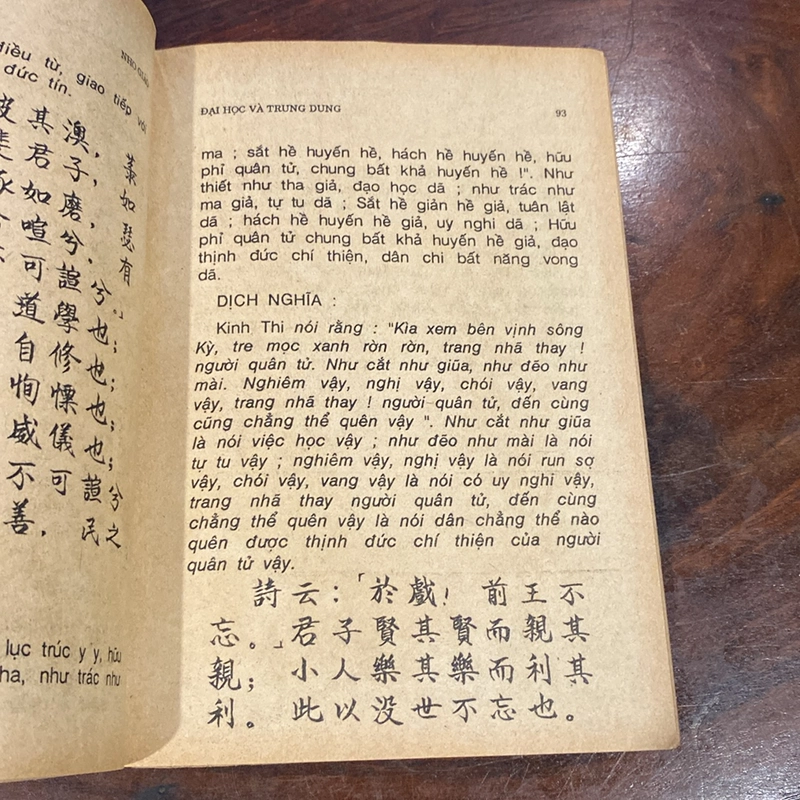 NHO GIÁO
điều từ, giao tiếp với
đức tín.
彼其澳,菉
斐君子,如
琢如磨,瑟
兮喧兮,有
可諠兮。」
道學也;
自修也;
恂慄也;
威儀也;
不可諠兮
善,民之
lục trúc y y, hữu
ha, như trác như
ĐẠI HỌC VÀ TRUNG DUNG 93
ma ; sắt hề huyến hề, hách hề huyến hề, hữu
phỉ quân tử, chung bất khả huyến hề !". Như
thiết như tha giả, đạo học dã ; như trác như
ma giả, tự tu dã ; Sắt hề giản hề giả, tuân lật
dã ; hách hề huyến hề giả, uy nghi dã ; Hữu
phỉ quân tử chung bất khả huyến hề giả, đạo
thịnh đức chí thiện, dân chi bất năng vong
dã.
DỊCH NGHĨA :
Kinh Thi nói rằng : "Kìa xem bên vịnh sông
Kỳ, tre mọc xanh ròn ròn, trang nhã thay !
người quân tử. Như cắt như giũa, như đẽo như
mài. Nghiêm vậy, nghị vậy, chói vậy, vang
vậy, trang nhã thay ! người quân tử, đến cùng
cũng chẳng thể quên vậy ". Như cắt như giũa
là nói việc học vậy ; như đẽo như mài là nói
tự tu vậy ; nghiêm vậy, nghị vậy là nói run sợ
vậy, chói vậy, vang vậy là nói có uy nghi vậy,
trang nhã thay người quân tử, đến cùng
chẳng thể quên vậy là nói dân chẳng thể nào
quên được thịnh đức chí thiện của người
quân tử vậy.
詩云:「於戲!前王不
忘。」君子賢其賢而親其
親;小人樂其樂而利其
利。此以没世不忘也。